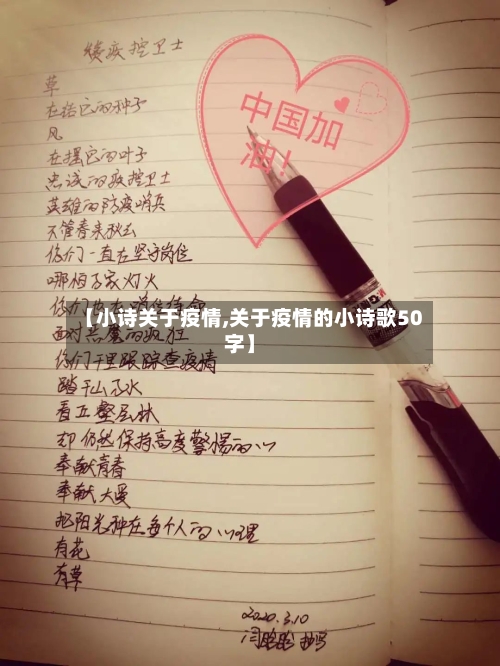 疫控卫士
草
在括它的种子
风
在摆它的叶子
忠诚的疫控卫士
英雄的防疫哨兵
不管春来秋去
你们一直在坚守岗位
哪怕万家灯火
你们
面对恶魔的疯狂
你们千里跟踪查疫情
踏千山万水
看丘壑层林
却仍然保持高度警惕的心
奉献青春
奉献大爱
把阳光种在每个人的心理
有花
有草
2020.3.10
中国加
油!
【小诗关于疫情,关于疫情的小诗歌50
字】